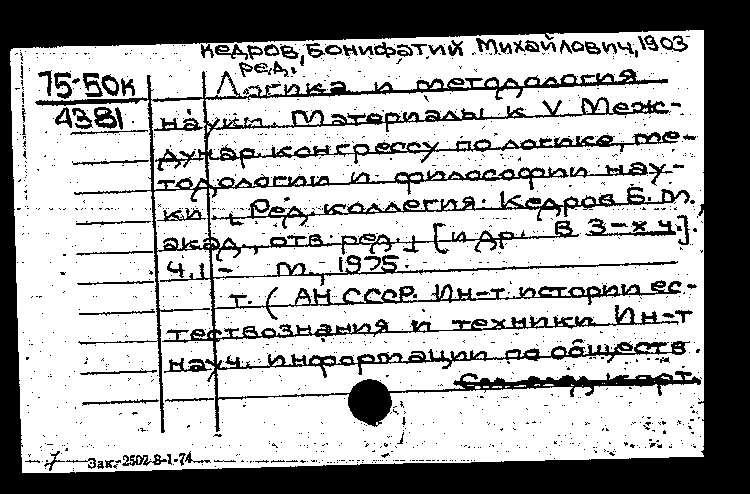 Кедров, Бонифатий Михайлович, 1903
ред.
75-50к
4381
Логика и методология
науки. Материалы к V Меж-
дунар. конгрессу по логике, ме-
тодологии и философии нау-
ки. [Ред. коллегия: Кедров Б. М.,
акад., отв. ред.] [и др. В 3-х ч.].
Ч. 1 - М., 1975.
т. (АН СССР. Ин-т истории ес-
тествознания и техники Ин-т
науч. информации по обществ.
См. след. карт.
7
Зак.-2502-8-1-74